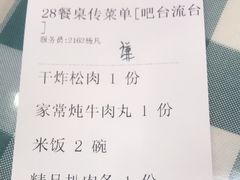 28餐桌传菜单[吧台流台
]
服务员:2162杨凡
干炸松肉 1 份
家常炖牛肉丸 1 份
米饭 2 碗